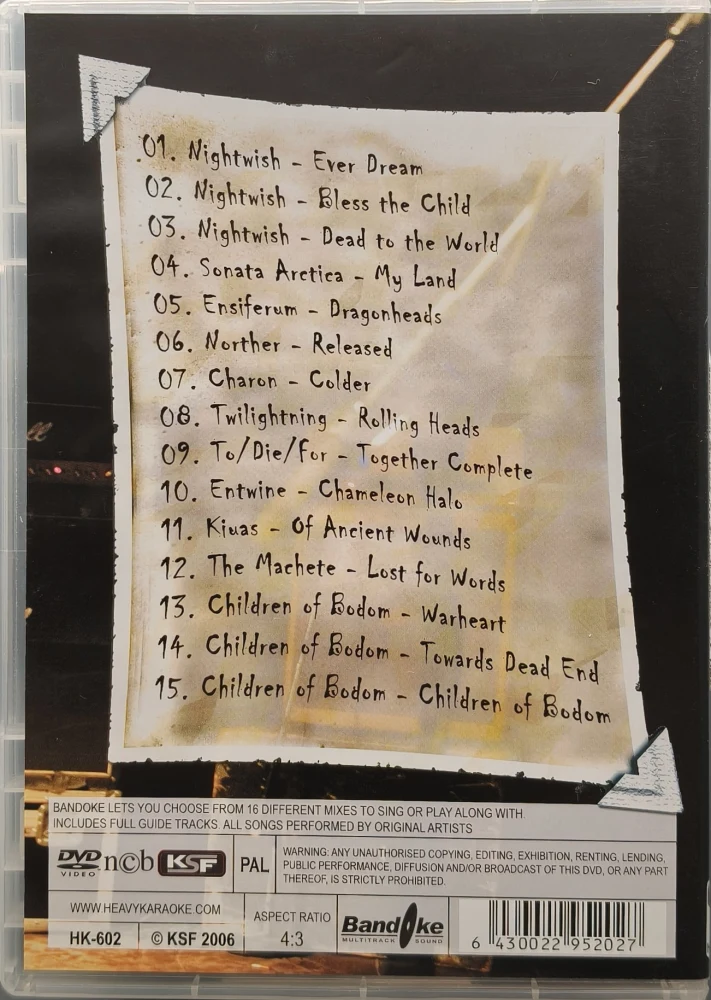 01. Nightwish - Ever Dream
02. Nightwish - Bless the Child
03. Nightwish - Dead to the World
04. Sonata Arctica - My Land
05. Ensiferum - Dragonheads
06. Norther - Released
07. Charon - Colder
08. Twilightning - Rolling Heads
09. To/Die/For - Together Complete
10. Entwine - Chameleon Halo
11. Kiuas - Of Ancient Wounds
12. The Machete - Lost for Words
13. Children of Bodom - Warheart
14. Children of Bodom - Towards Dead End
15. Children of Bodom - Children of Bodom
BANDOKE LETS YOU CHOOSE FROM 16 DIFFERENT MIXES TO SING OR PLAY ALONG WITH.
INCLUDES FULL GUIDE TRACKS. ALL SONGS PERFORMED BY ORIGINAL ARTISTS
DVD VIDEO
n©b
KSF
PAL
WARNING: ANY UNAUTHORISED COPYING, EDITING, EXHIBITION, RENTING, LENDING,
PUBLIC PERFORMANCE, DIFFUSION AND/OR BROADCAST OF THIS DVD, OR ANY PART
THEREOF, IS STRICTLY PROHIBITED.
WWW.HEAVYKARAOKE.COM
HK-602
© KSF 2006
ASPECT RATIO
4:3
Bandoke
MULTITRACK SOUND
6 430022 952027